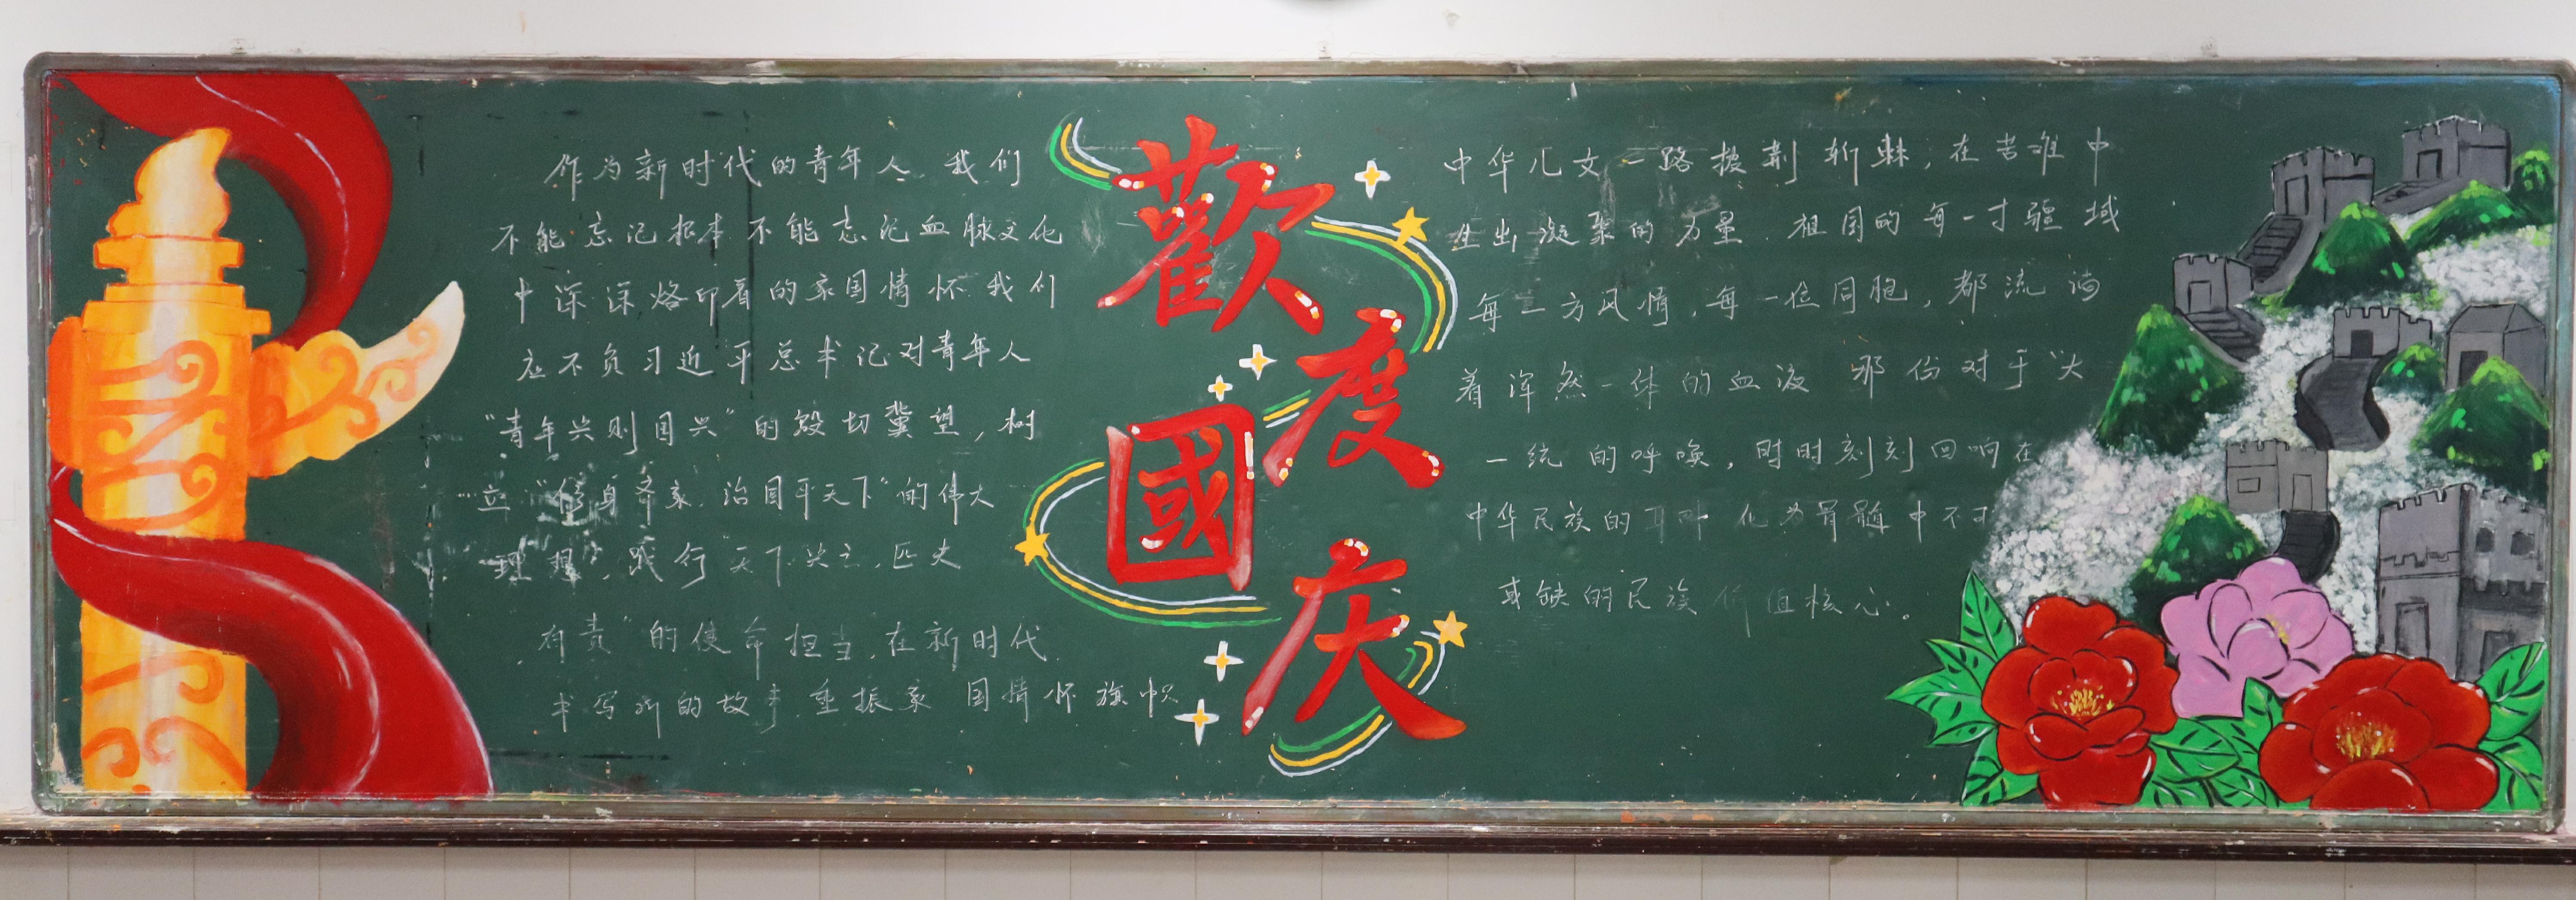 作为新时代的青年人，我们
不能忘记根本，不能忘记血脉文化
中深深烙印着的家国情怀。我们
应不负习近平总书记对青年人
“青年兴则国兴”的殷切冀望，树
立“修身齐家，治国平天下”的伟大
理想，践行“天下兴亡，匹夫
有责”的使命担当，在新时代
书写新的故事，重振家国情怀旗帜
歡
度
國
庆
中华儿女一路披荆斩棘，在苦难中
生出凝聚的力量。祖国的每一寸疆域
每一方风情，每一位同胞，都流淌
着浑然一体的血液，那份对于“大
一统的呼唤，时时刻刻回响在
中华民族的耳畔，化为骨髓中不可
或缺的民族价值核心。